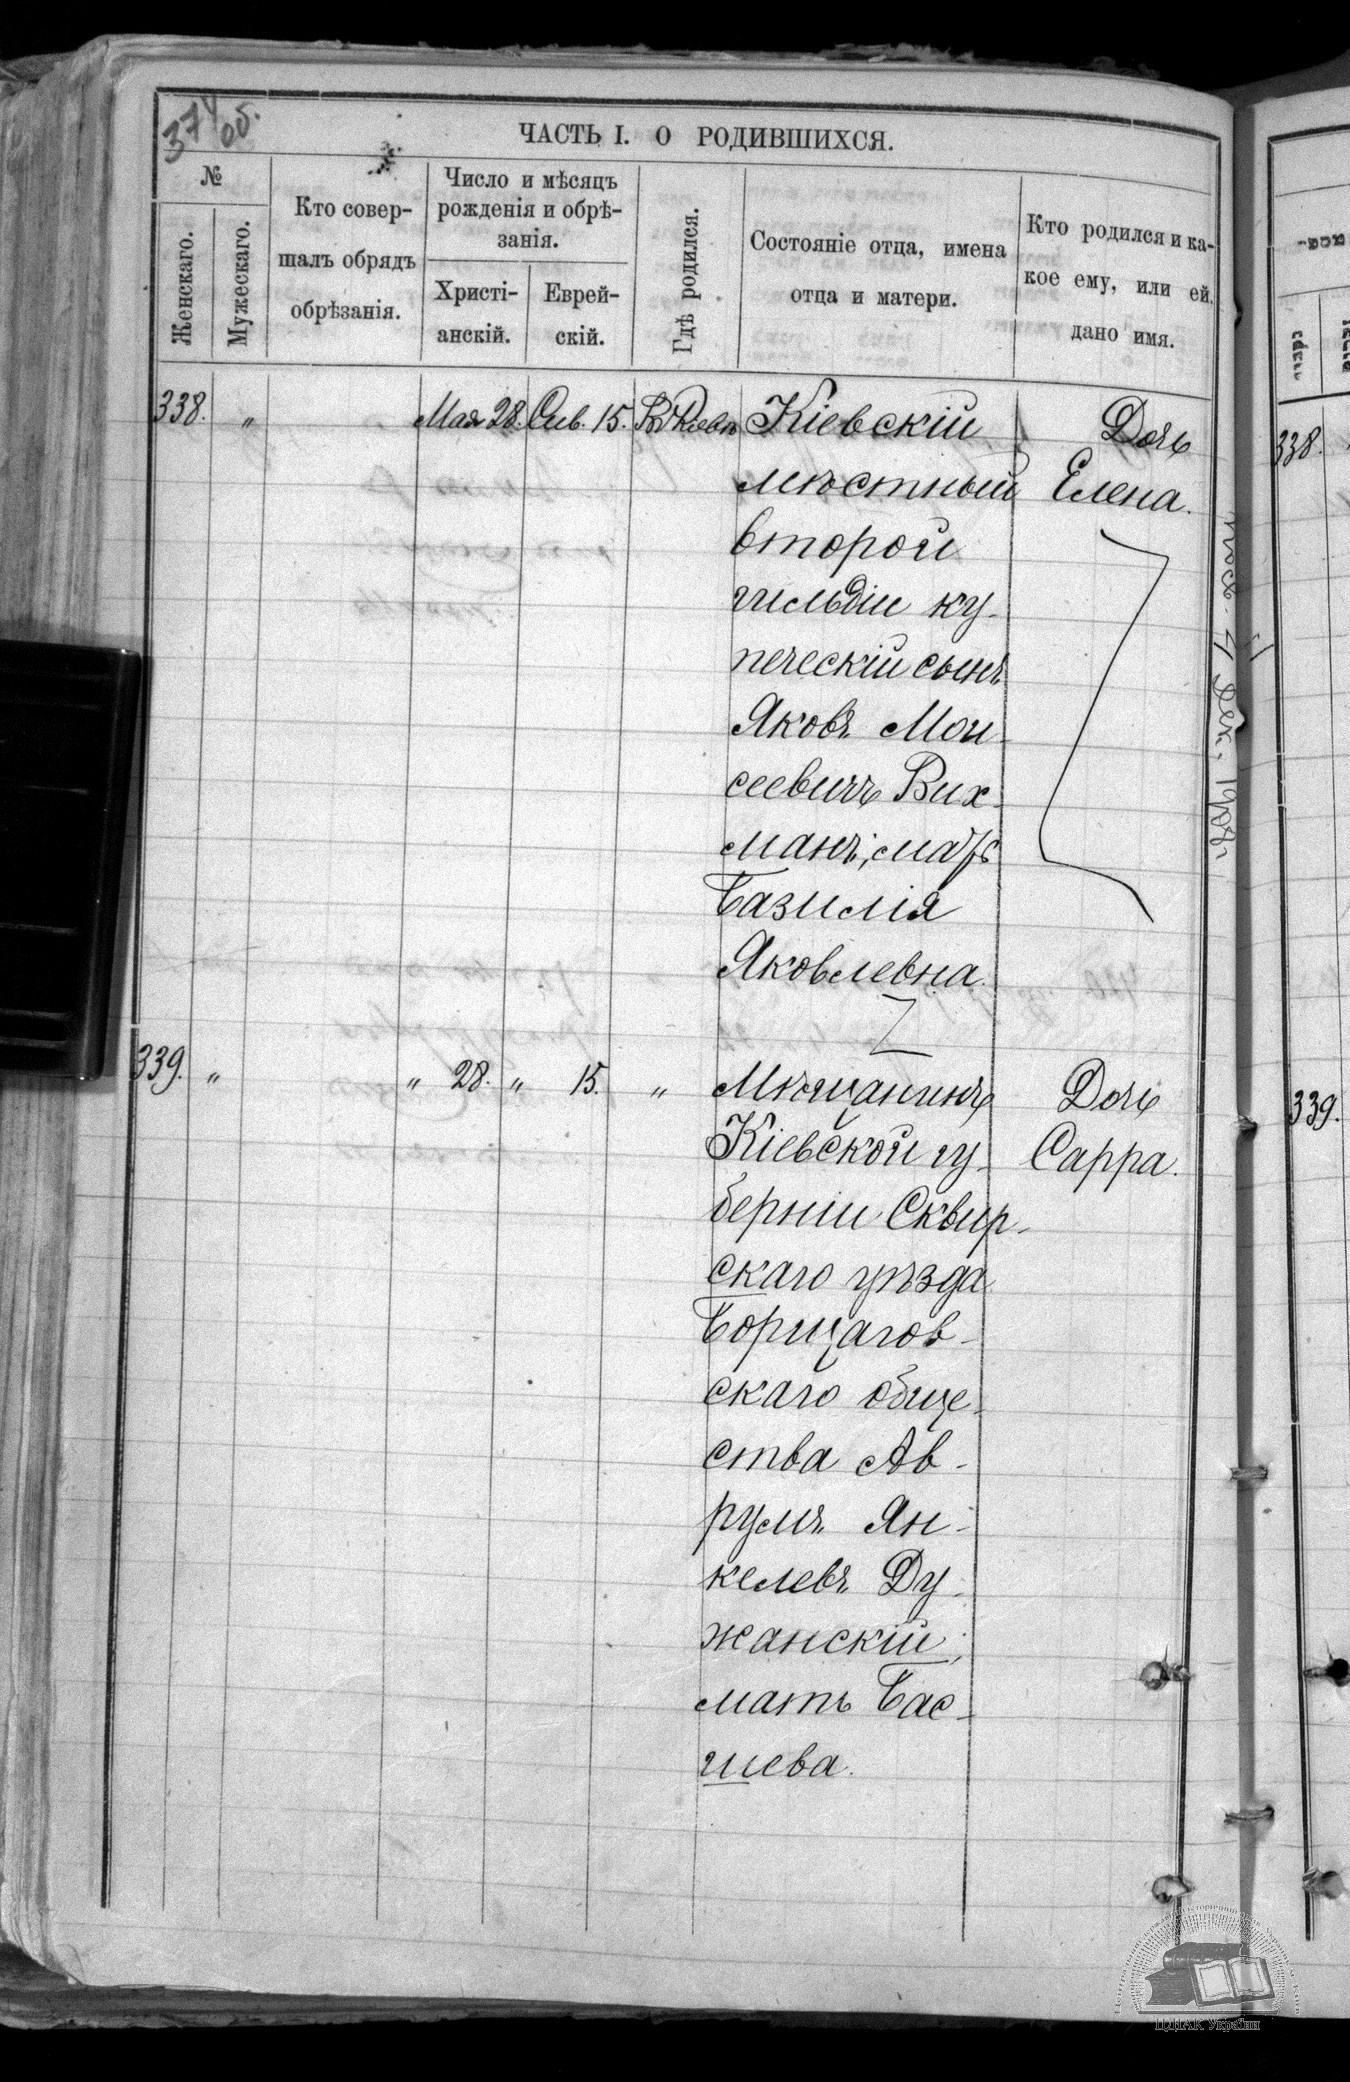 374 об.
ЧАСТЬ I. О РОДИВШИХСЯ.
№
Женскаго.
Мужескаго.
Кто совер-
шалъ обрядъ
обрѣзанія.
Число и мѣсяцъ
рожденія и обрѣ-
занія.
Христі-
анскій.
Еврей-
скій.
Гдѣ родился.
Состояніе отца, имена
отца и матери.
Кто родился и ка-
кое ему, или ей,
дано имя.
338. „ Мая 28. Сив. 15. Въ Кіевѣ
Кіевскій
мѣстный
второй
гильдіи ку-
печескій сынъ
Яковъ Мои-
сеевичъ Вих-
манъ, мать
Базилія
Яковлевна.
Дочь
Елена.
4 дек. 1908 г.
339. „ „ 28. „ 15. „
Мѣщанинъ
Кіевской гу-
берніи Сквир-
скаго уѣзда
Борщагов-
скаго обще-
ства Ав-
румъ Ян-
келевъ Ду-
жанскій;
мать Бас-
шева.
Дочь
Сарра.
338.
339.
ЦДІАК України